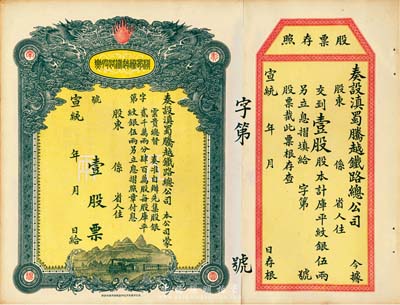 股票存照
奏設滇蜀騰越鐵路總公司 今據
股東 係 省 人住
交到壹股股本計庫平紋銀伍兩
另立息摺填給 字第 號
股票截此票根存查
宣統 年 月 日存根
字第 號
奏設滇蜀騰越鐵路總公司 本公司蒙
雲貴總督 奏准自辦先集股銀
貳千萬兩分肆百萬股每股庫平
紋銀伍兩另立息摺照章付息
股東 係 省 人住
字第 號
壹股票
宣統 年 月 日給